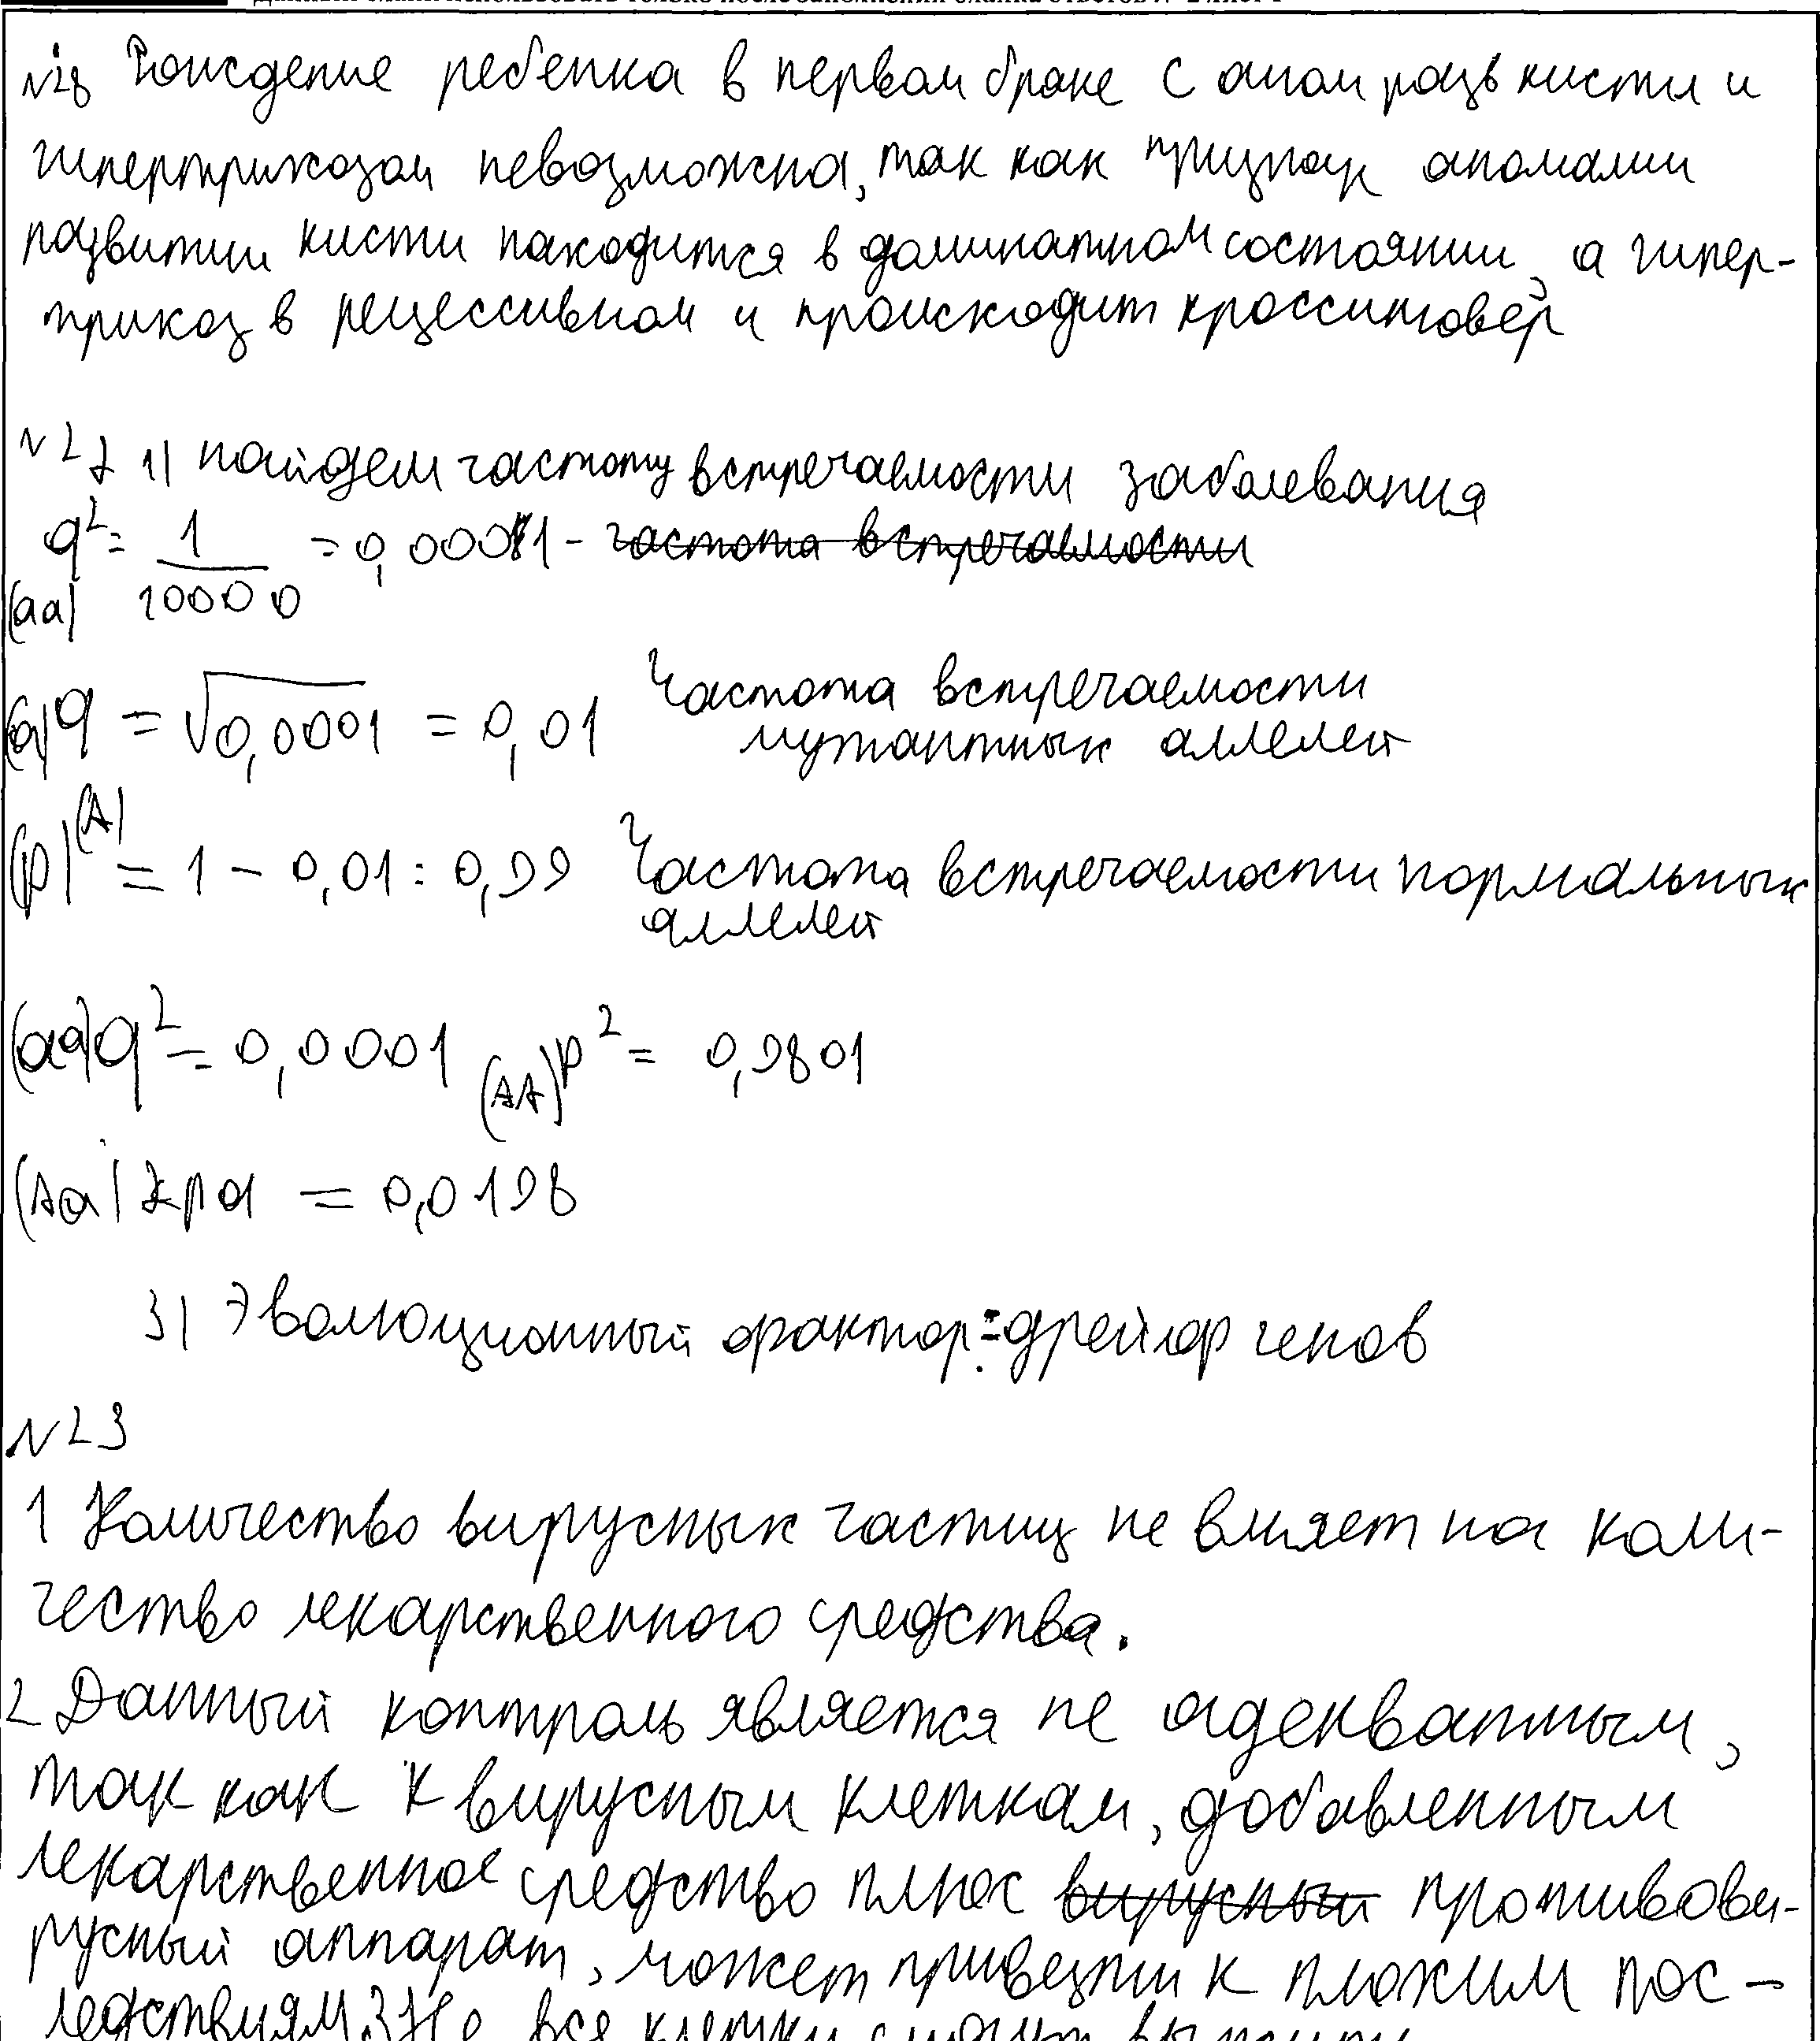 №28 Рождение ребенка в первом браке с аном разв кисти и
гипертрихозом невозможна, так как признак аномалии
развитии кисти находится в доминатном состоянии, а гипер-
трихоз в рецессивном и происходит кроссинговер
№27 1) найдем частоту встречаемости заболевания
q² = 1/10000 = 0,0001 - частота встречаемости
(aa)
(a) q = √0,0001 = 0,01 Частота встречаемости
мутантных аллелей
(p)(A) = 1 - 0,01 = 0,99 Частота встречаемости нормальных
аллелей
(aa) q² = 0,0001 (AA) p² = 0,9801
(Aa) 2pq = 0,0198
3) Эволюционный фактор: дрейф генов
№23
1 Количество вирусных частиц не влияет на коли-
чество лекарственного средства.
2 Данный контроль является не адекватным,
так как к вирусным клеткам, добавленным
лекарственное средство плюс вирусный противови-
русный аппарат, может привезти к плохим пос-
ледствиям. 3) Не все клетки смогут